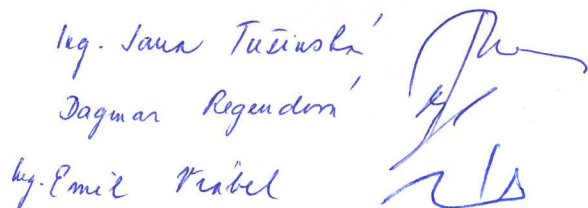 Ing. Jana Tušinská
Dagmar Regendová
Ing. Emil Vrábel